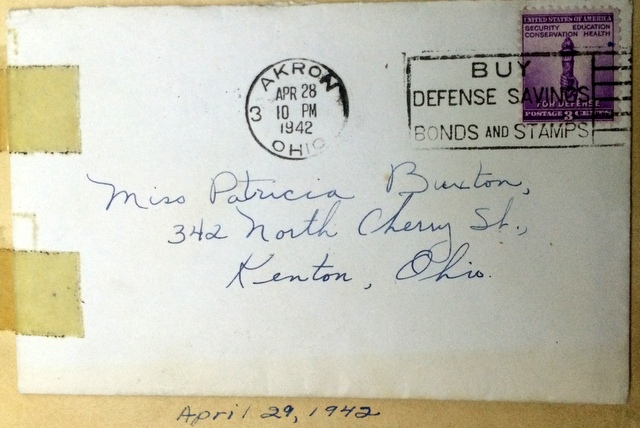 UNITED STATES OF AMERICA
SECURITY EDUCATION
CONSERVATION HEALTH
FOR DEFENSE
POSTAGE 3 CENTS
AKRON
APR 28
3 10 PM
1942
OHIO
BUY
DEFENSE SAVINGS
BONDS AND STAMPS
Miss Patricia Buxton,
342 North Cherry St.,
Kenton, Ohio.
April 29, 1942